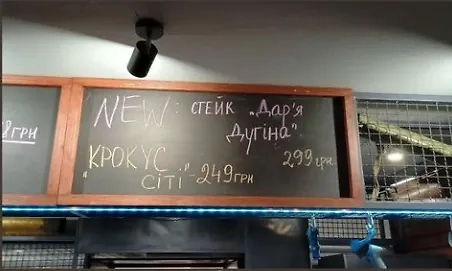 NEW: СТЕЙК „Дар'я
Дугіна"
299 грн
"КРОКУС
СІТІ" - 249 грн
8 ГРН